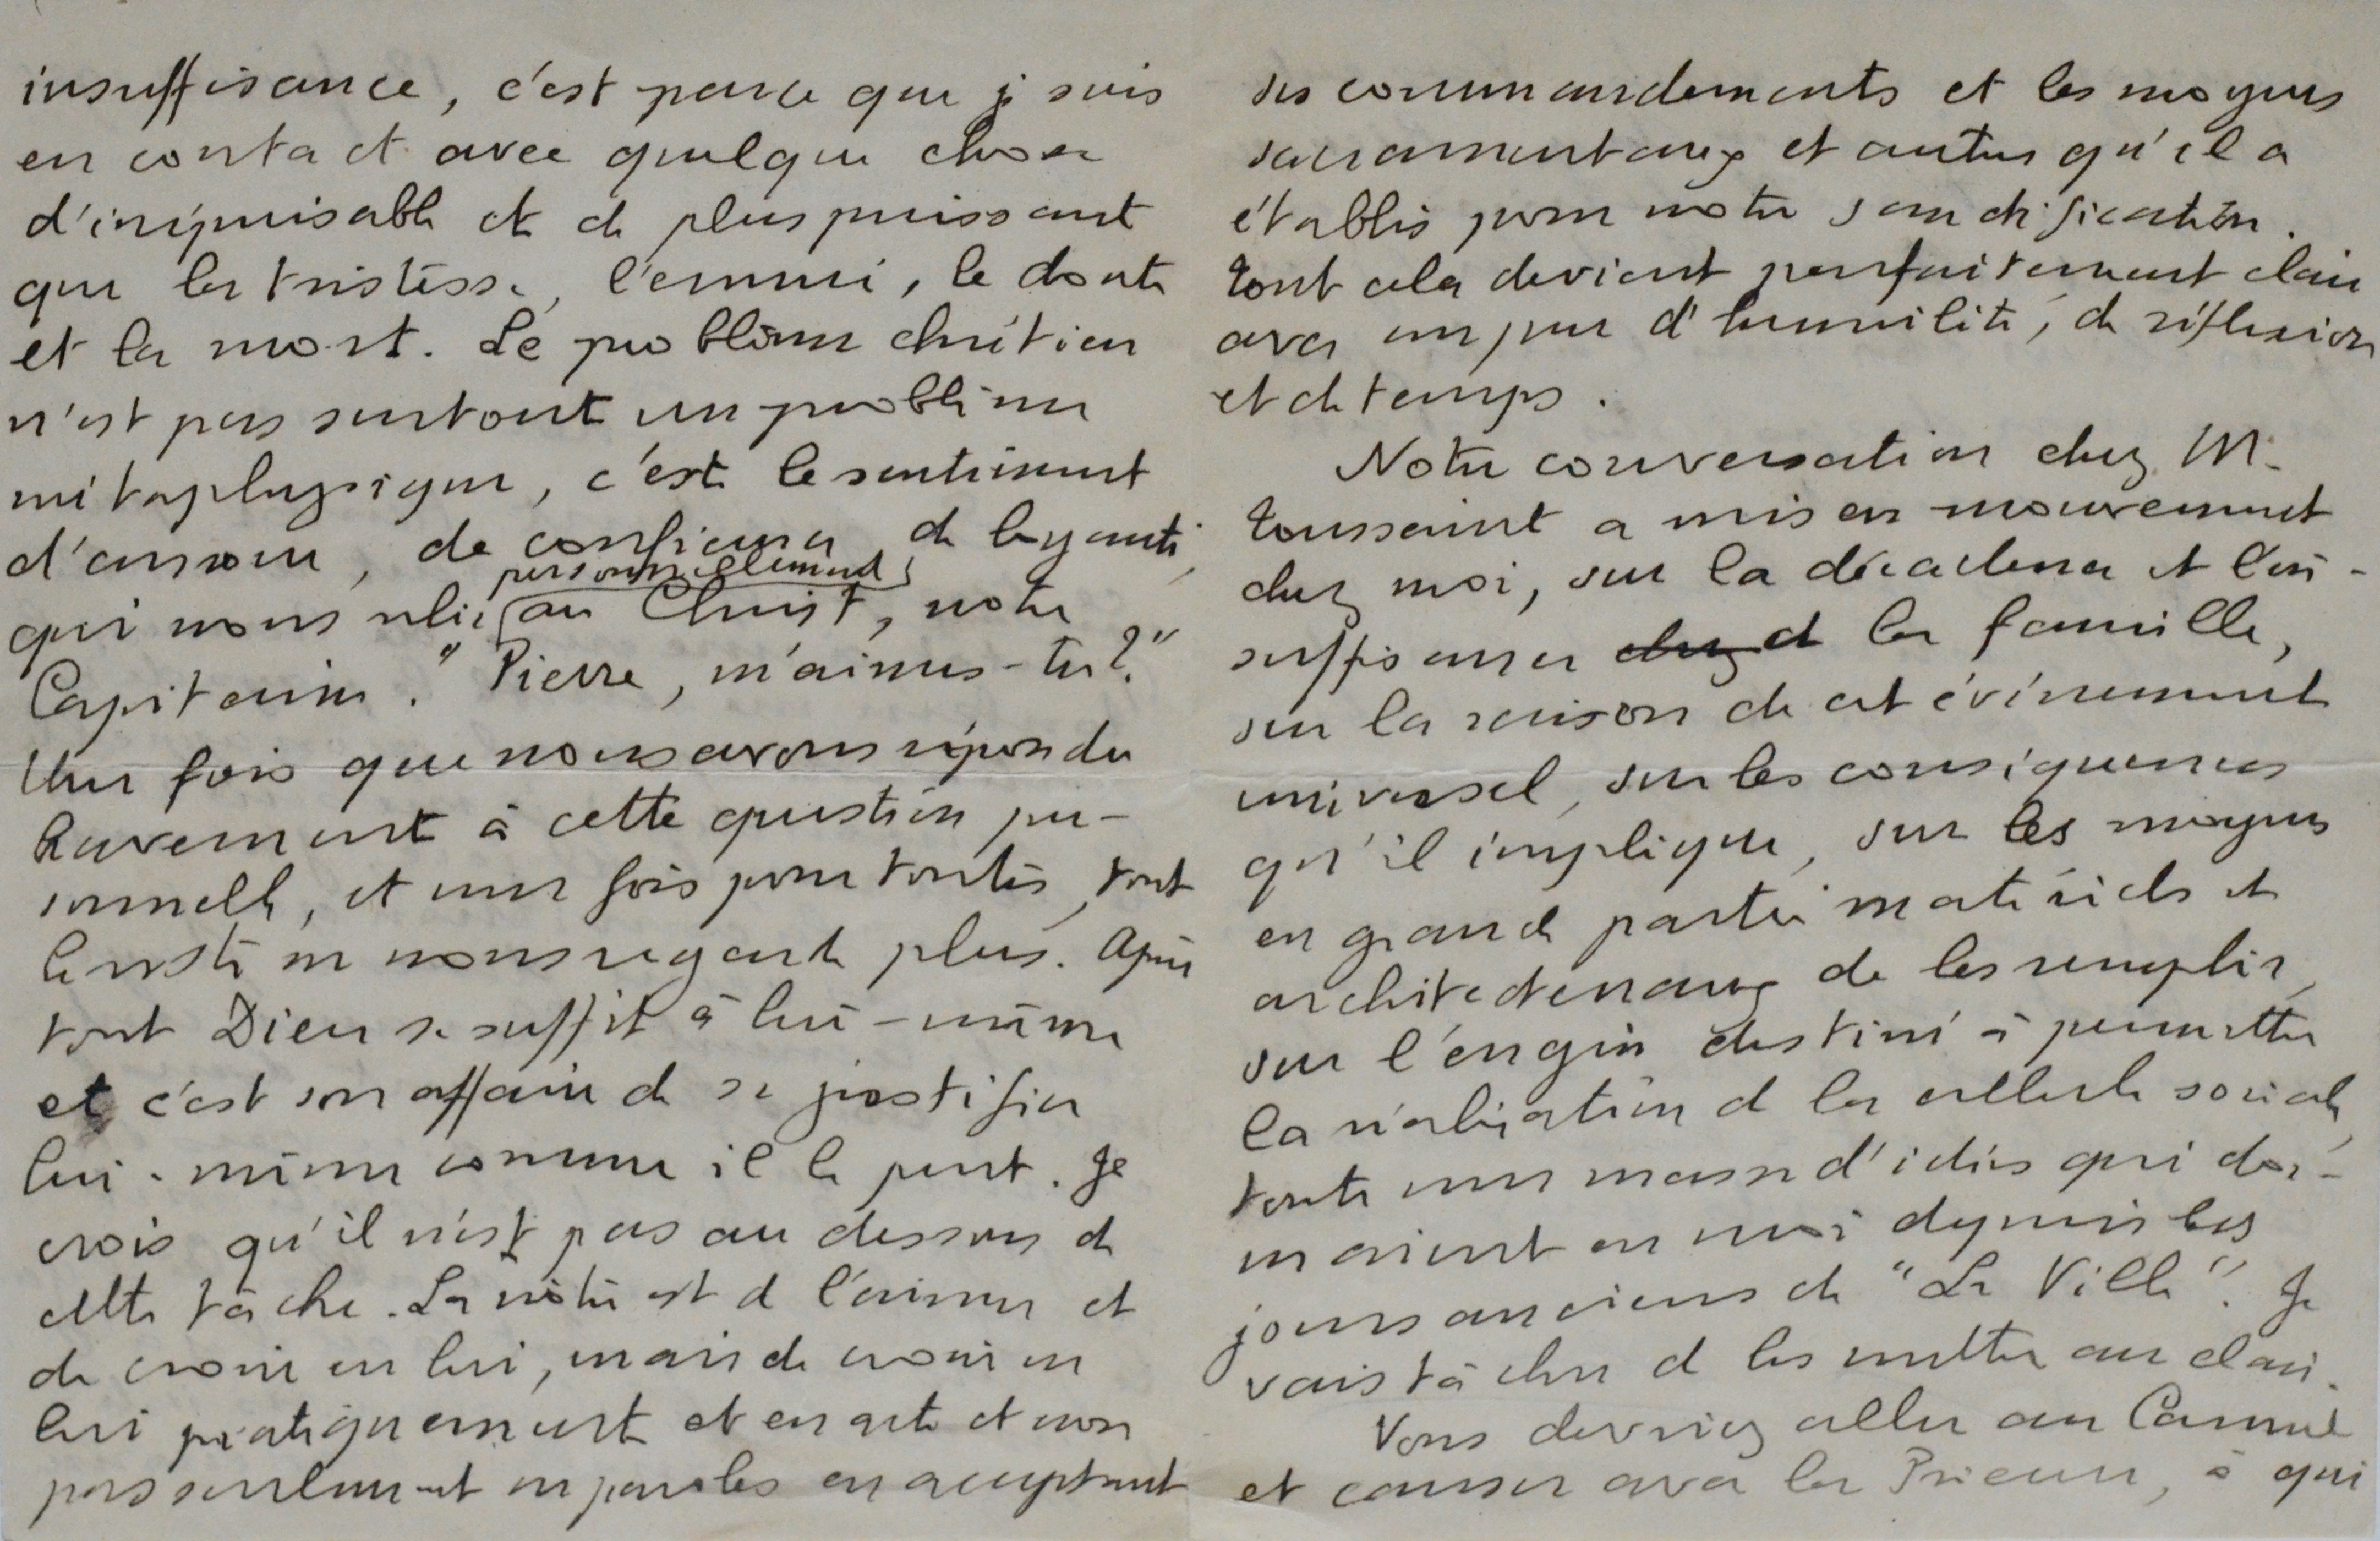 insuffisance, c'est parce que je suis
en contact avec quelque chose
d'inépuisable et de plus puissant
que la tristesse, l'ennui, le doute
et la mort. Le problème chrétien
n'est pas surtout un problème
métaphysique, c'est le sentiment
d'amour, de confiance, de loyauté,
personnellement
qui nous relie au Christ, notre
Capitaine. "Pierre, m'aimes-tu?"
Une fois que nous avons répondu
bravement à cette question per-
sonnelle, et une fois pour toutes, tout
le reste ne nous regarde plus. Après
tout Dieu se suffit à lui-même
et c'est son affaire de se justifier
lui-même comme il le peut. Je
crois qu'il n'est pas au dessous de
cette tâche. La nôtre est de l'aimer et
de croire en lui, mais de croire en
lui pratiquement et en acte et non
pas seulement en paroles en acceptant
ses commandements et les moyens
sacramentaux et autres qu'il a
établis pour notre sanctification.
Tout cela devient parfaitement clair
avec un peu d'humilité, de réflexion
et de temps.
Notre conversation chez M.
Toussaint a mis en mouvement
chez moi, sur la décadence et l'in-
suffisance chez de la famille,
sur la raison de cet événement
universel, sur les conséquences
qu'il implique, sur les moyens
en grande partie matériels et
architecturaux de les remplir,
sur l'engin destiné à permettre
la réalisation de la cellule sociale,
toute une masse d'idées qui dor-
maient en moi depuis les
jours anciens de "La Ville". Je
vais tâcher de les mettre au clair.
Vous devriez aller au Carmel
et causer avec la Prieure, à qui